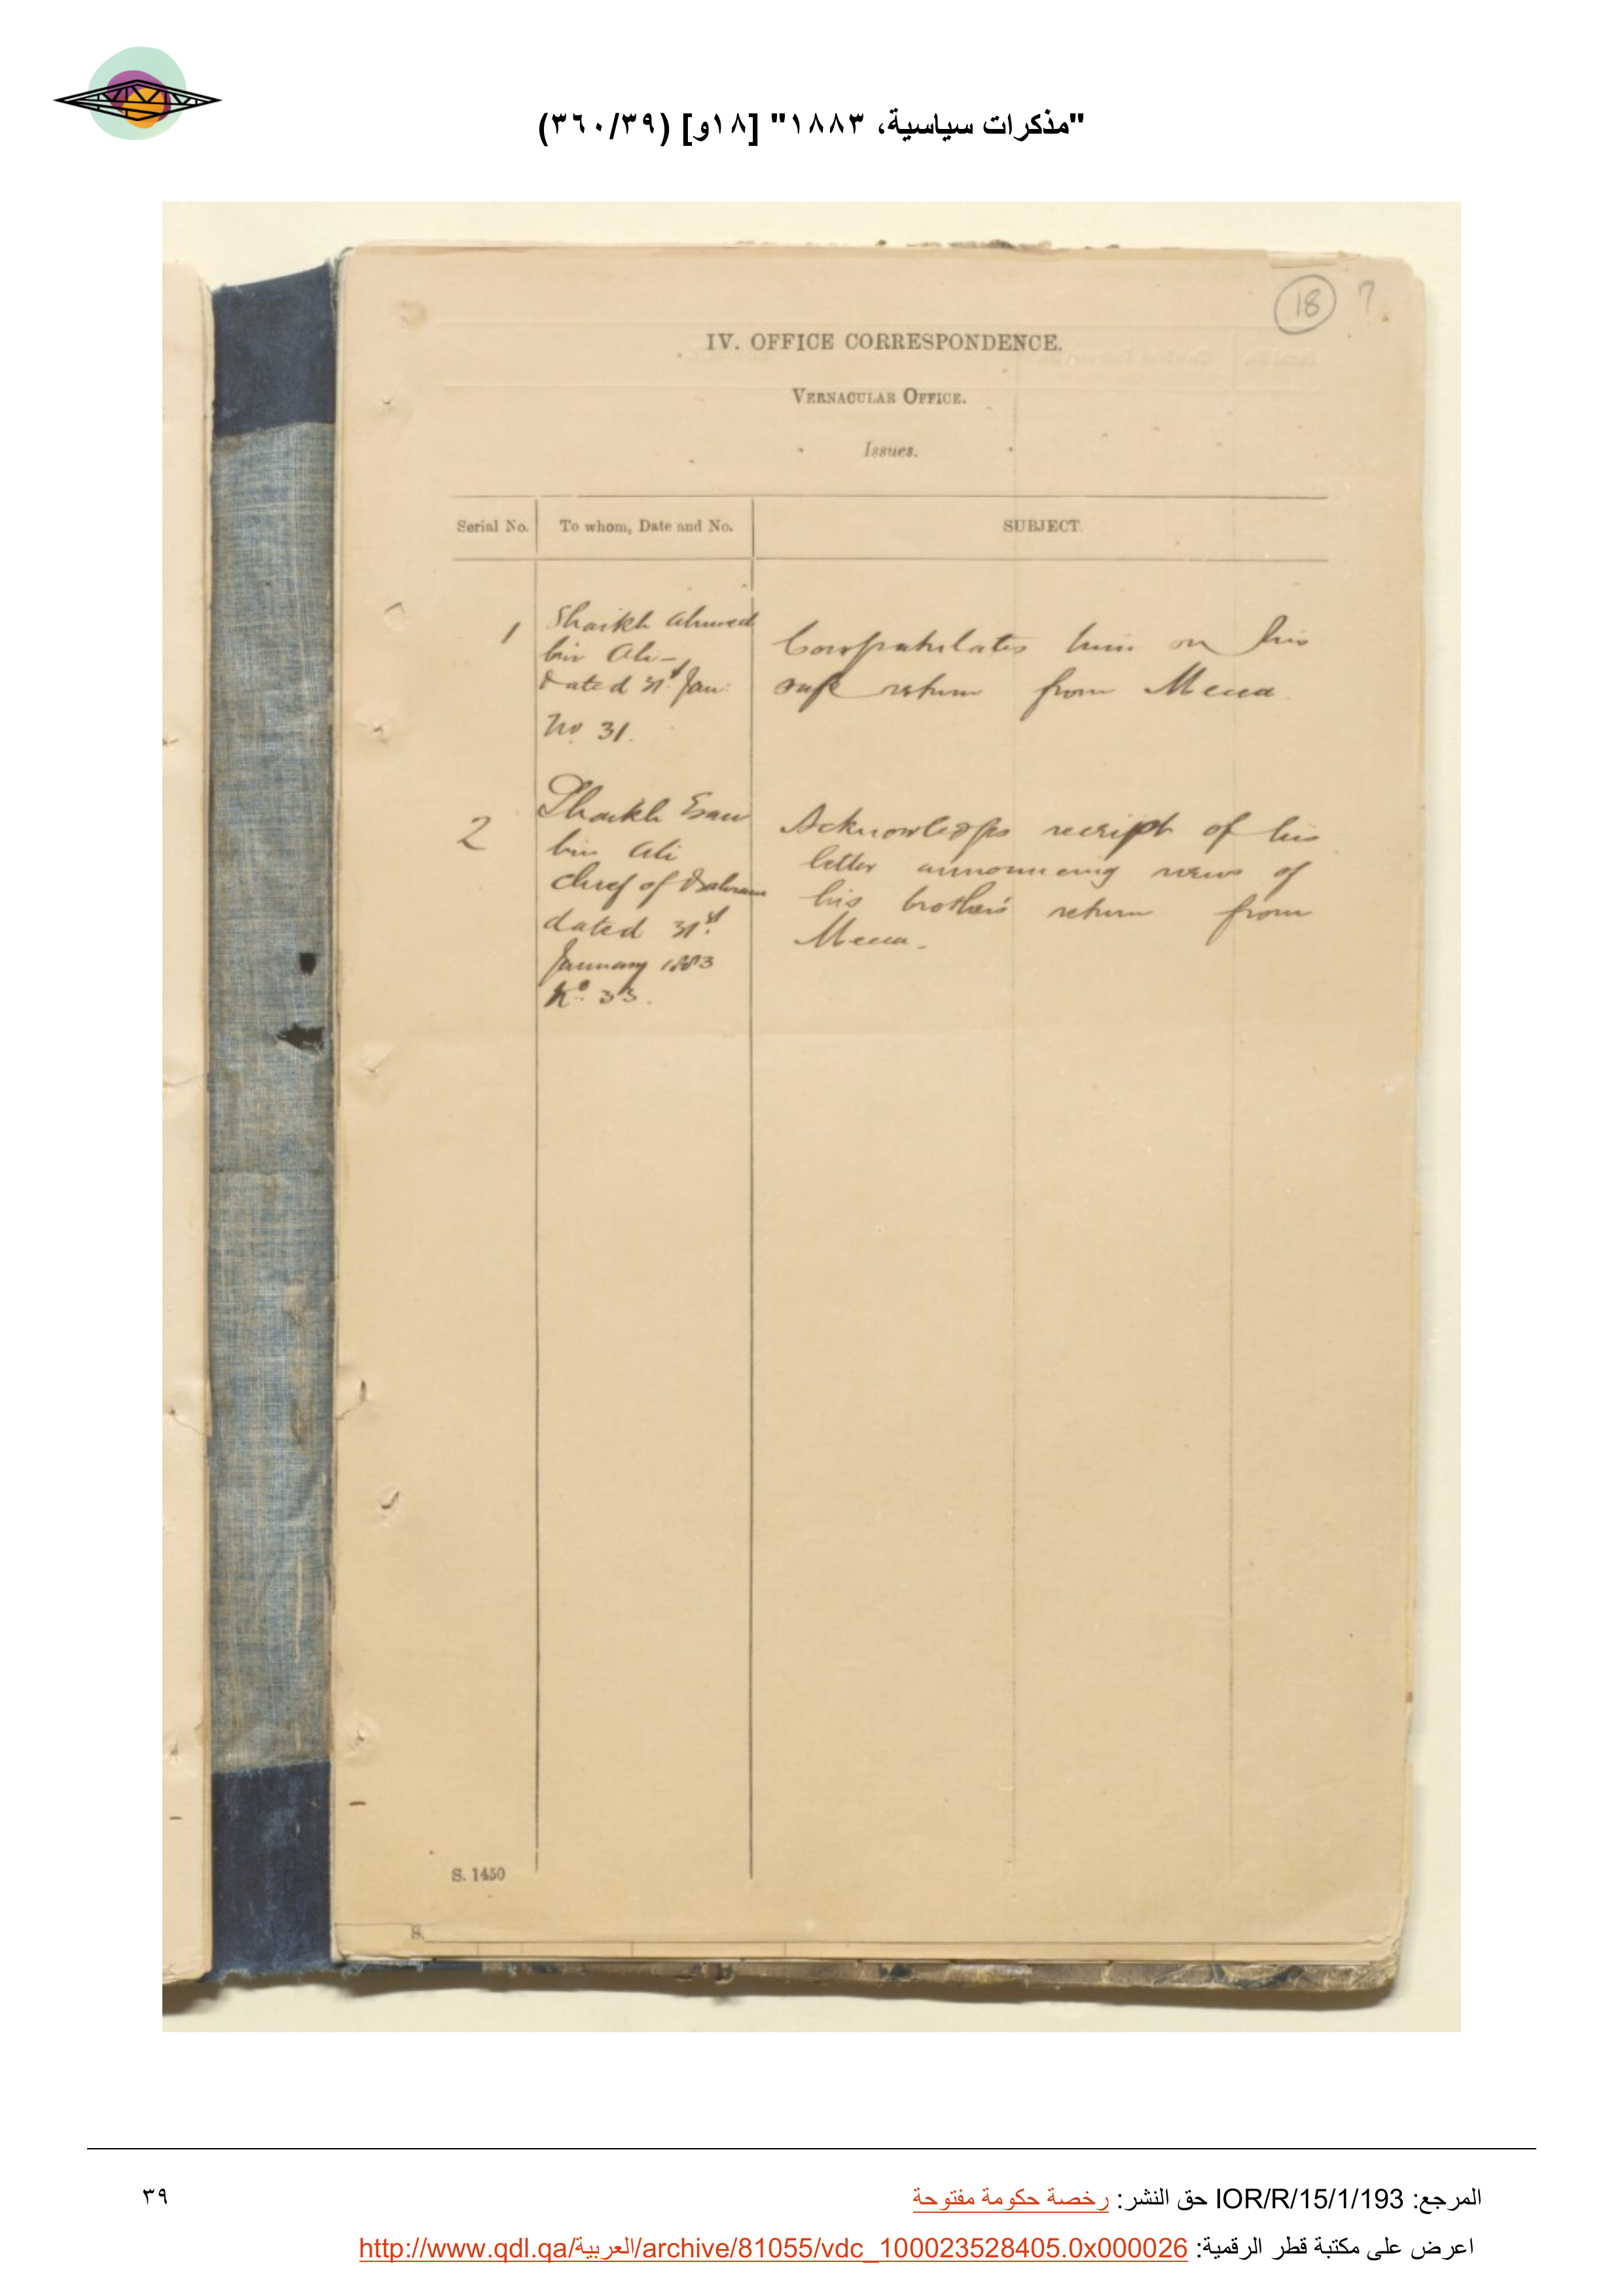 "مذكرات سياسية، ١٨٨٣" [١٨و] (٣٦٠/٣٩)
18 7
IV. OFFICE CORRESPONDENCE.
VERNACULAR OFFICE.
Issues.
Serial No. To whom, Date and No. SUBJECT.
1 Shaikh Ahmed
bin Ali –
dated 31st Jan:
No 31.
Congratulates him on his
safe return from Mecca
2 Shaikh Esau
bin Ali
chief of Bahrain
dated 31st
January 1883
No. 33.
Acknowledges receipt of his
letter announcing news of
his brother's return from
Mecca.
S. 1450
S.
المرجع: IOR/R/15/1/193 حق النشر: رخصة حكومة مفتوحة
٣٩
اعرض على مكتبة قطر الرقمية: http://www.qdl.qa/العربية/archive/81055/vdc_100023528405.0x000026